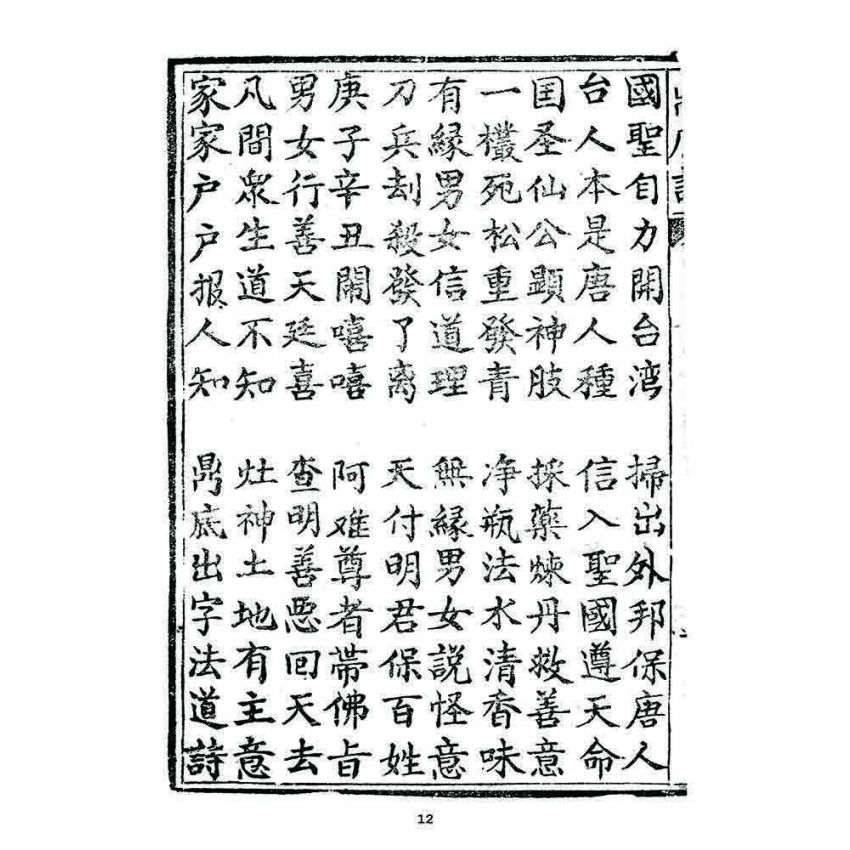 國聖自力開台湾 掃出外邦保唐人
台人本是唐人種 信入聖國遵天命
囯圣仙公顕神肢 採藥煉丹救善意
一欉死松重發青 净瓶法水清香味
有縁男女信道理 無縁男女説怪意
刀兵刦殺發了离 天付明君保百姓
庚子辛丑鬧嘻嘻 阿难尊者帯佛旨
男女行善天廷喜 查明善悪回天去
凡間衆生道不知 灶神土地有主意
家家户户报人知 鼎底出字法道詩
12